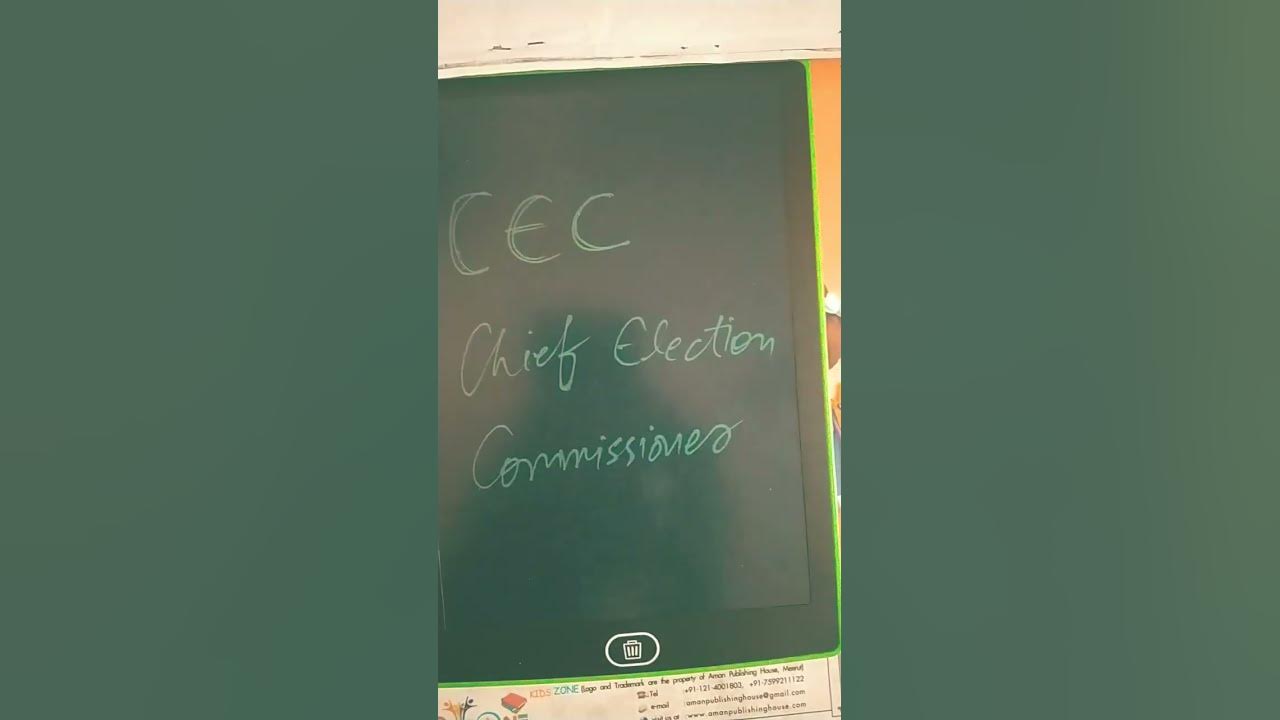 CEC
Chief Election
Commissioner
KIDS ZONE (Logo and Trademark are the property of Aman Publishing House, Meerut)
Tel :+91-121-4001803, +91-7599211122
e-mail :amanpublishinghouse@gmail.com
visit us at :www.amanpublishinghouse.com